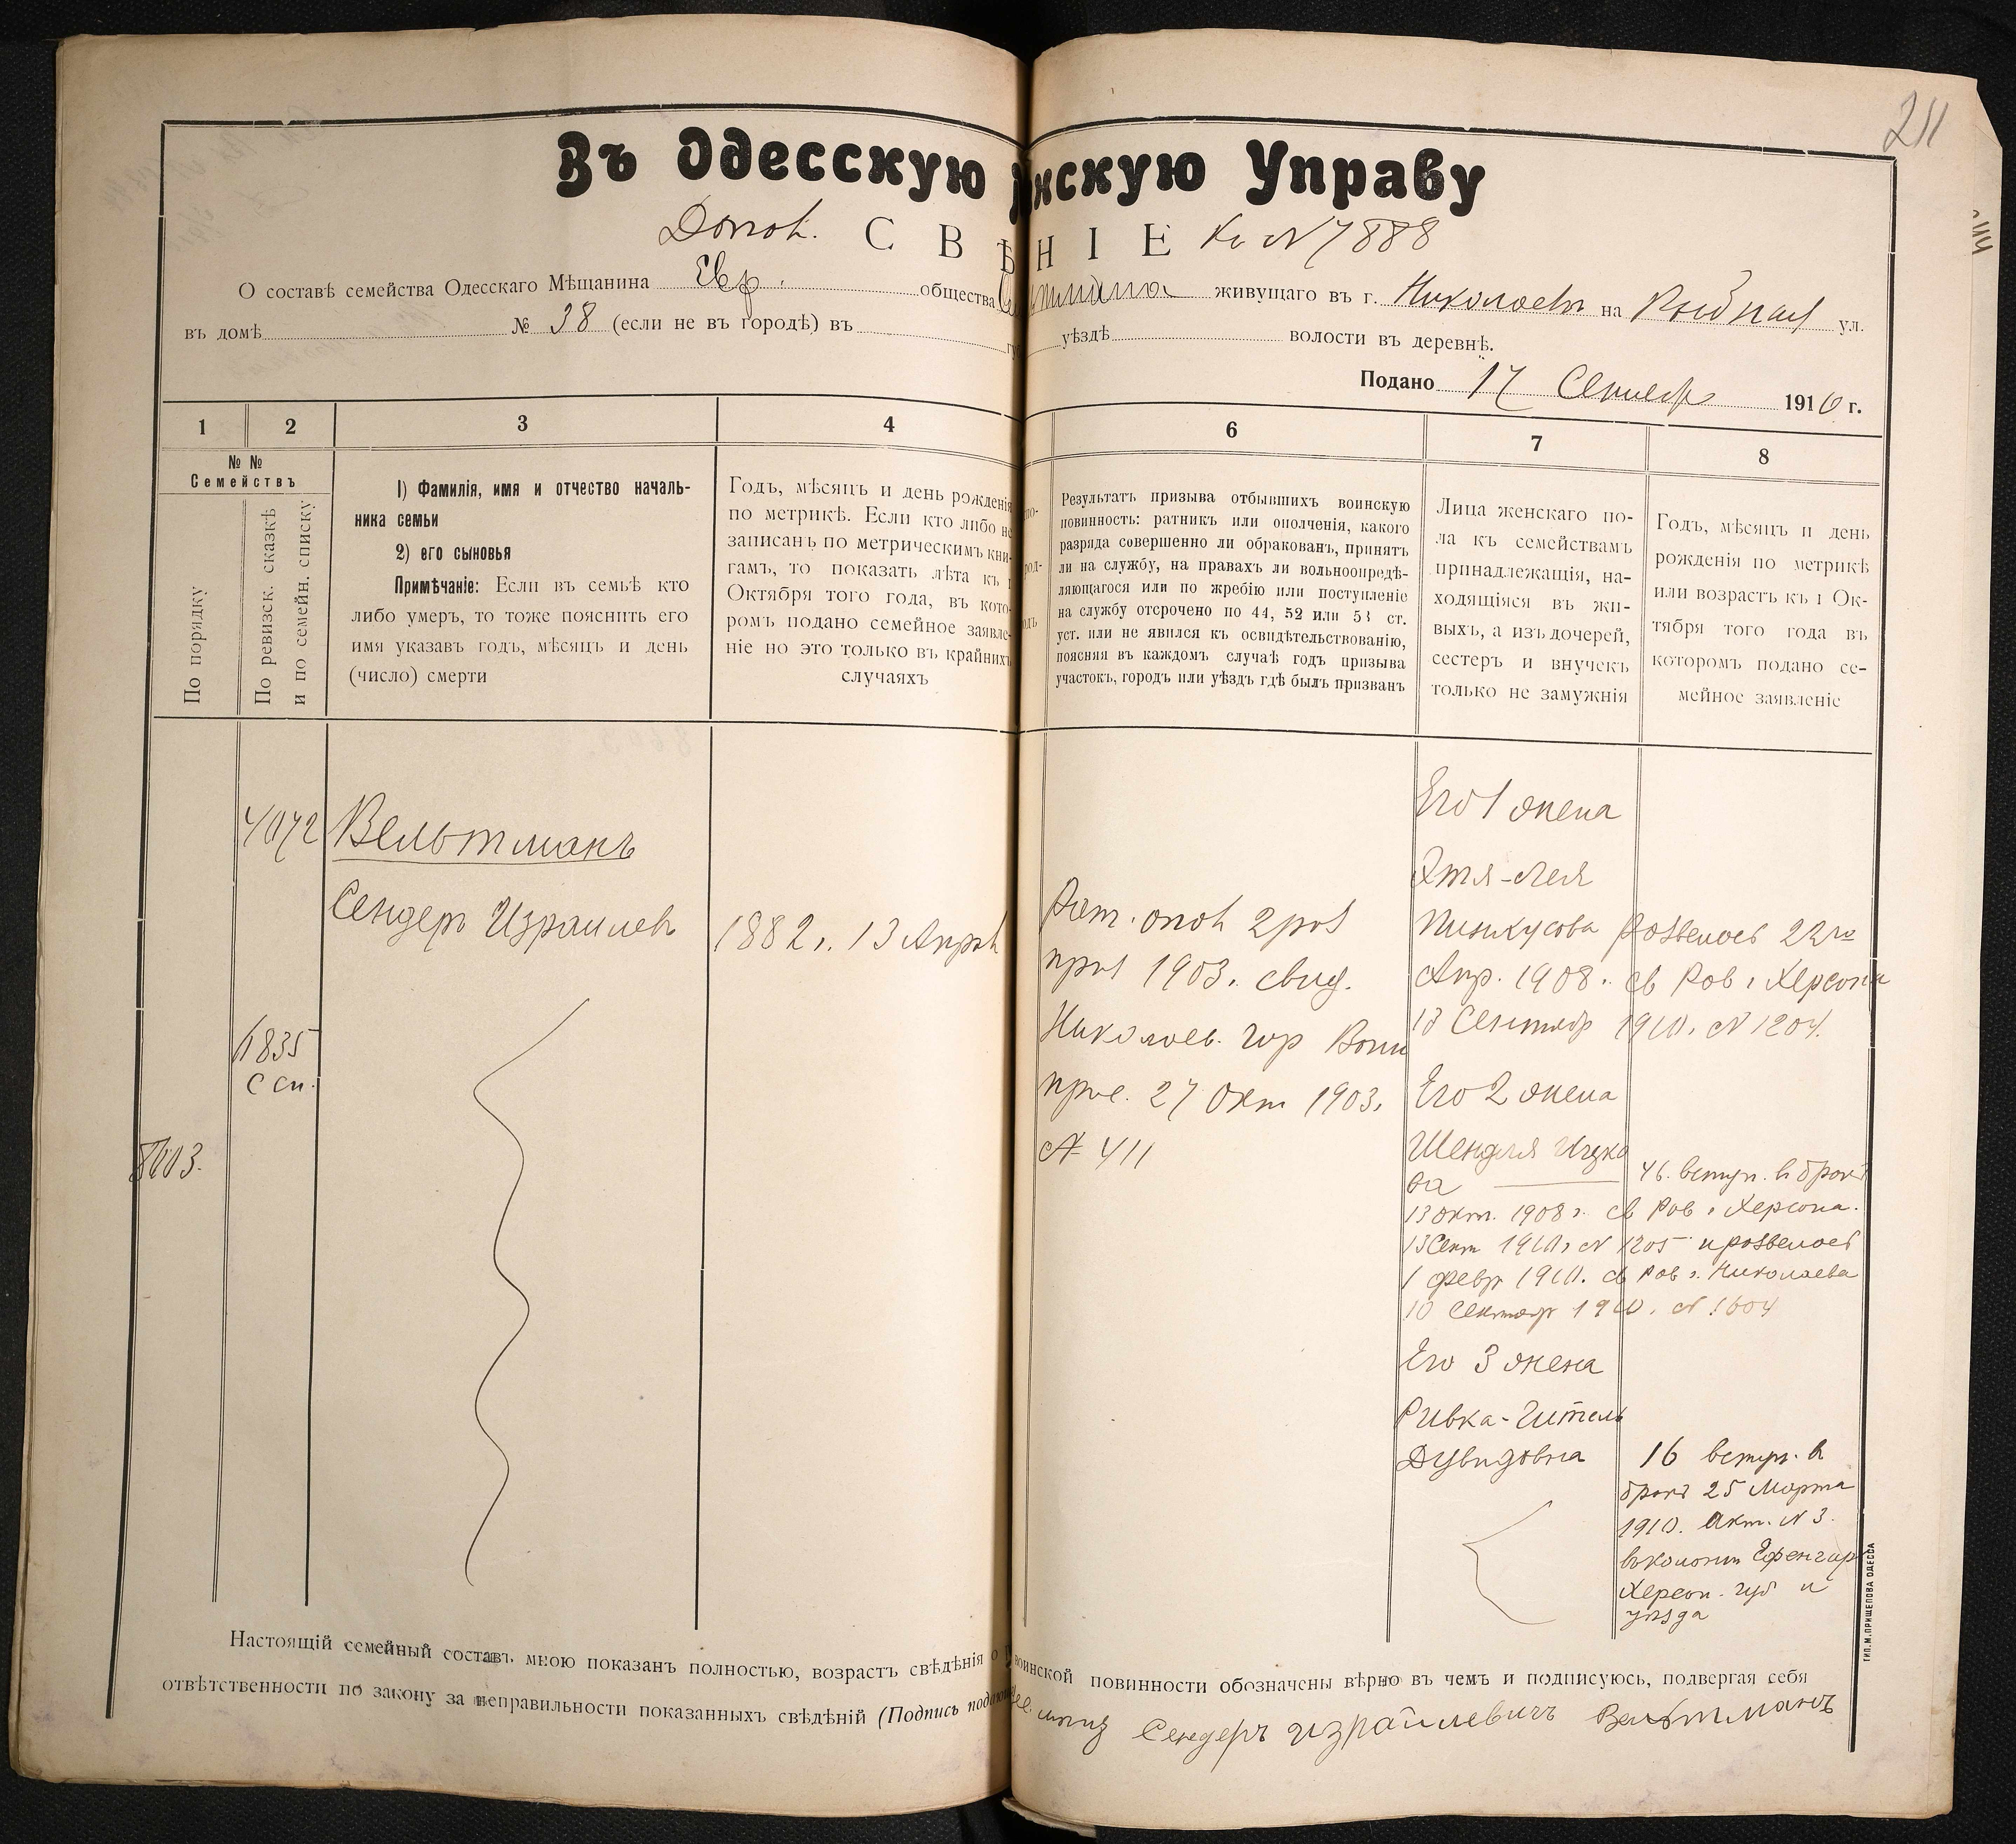 211
Въ Одесскую нскую Управу
Допол. СВѢ НІЕ Къ № 7888
О составѣ семейства Одесскаго Мѣщанина Евр. общества живущаго въ г. Николаевъ на Рыбная ул.
въ домѣ № 38 (если не въ городѣ) въ уѣздѣ волости въ деревнѣ.
Подано 17 Сентябр 1910 г.
1 2 3 4 6 7 8
№ №
Семействъ
По порядку
По ревизск. сказкѣ
и по семейн. списку
1) Фамилія, имя и отчество началь-
ника семьи
2) его сыновья
Примѣчаніе: Если въ семьѣ кто
либо умеръ, то тоже пояснить его
имя указавъ годъ, мѣсяцъ и день
(число) смерти
Годъ, мѣсяцъ и день рожденія
по метрикѣ. Если кто либо не
записанъ по метрическимъ кни-
гамъ, то показать лѣта къ 1
Октября того года, въ кото-
ромъ подано семейное заявле-
ніе но это только въ крайнихъ
случаяхъ
Результатъ призыва отбывшихъ воинскую
повинность: ратникъ или ополченія, какого
разряда совершенно ли обракованъ, принятъ
ли на службу, на правахъ ли вольноопредѣ-
ляющагося или по жребію или поступленіе
на службу отсрочено по 44, 52 или 53 ст.
уст. или не явился къ освидѣтельствованію,
поясняя въ каждомъ случаѣ годъ призыва
участокъ, городъ или уѣздъ гдѣ былъ призванъ
Лица женскаго по-
ла къ семействамъ
принадлежащія, на-
ходящіяся въ жи-
выхъ, а изъ дочерей,
сестеръ и внучекъ
только не замужнія
Годъ, мѣсяцъ и день
рожденія по метрикѣ
или возрастъ къ 1 Ок-
тября того года въ
которомъ подано се-
мейное заявленіе
4072
Вельтманъ
Сендеръ Израилевъ
1882 г. 13 Апрѣл
1835
С сп.
8003.
Рат. опол 2 раз
приз 1903. свид.
Николаев. гор Воин
прис. 27 Окт 1903.
№ 411
Его 1 жена
Этя-Лея
Пинкусова развелась 22го
Апр. 1908. св Рав г Херсона
13 Сентябр 1910. № 1204.
Его 2 жена
Шендля Ицко
ва 46. вступ. в бракъ
13 окт. 1908 г. св Рав г Херсона.
13 Сент 1910 г № 1205 и развелась
1 февр 1910. св Рав г. Николаева
10 Сентябр 1910. № 1604
Его 3 жена
Ривка-Гитель
Дувидовна
16 вступ. в
бракъ 25 Марта
1910. Акт. № 3.
въ колонии Ефенгар
Херсон. губ и
уѣзда
Настоящій семейный составъ мною показанъ полностью, возрастъ свѣдѣнія о воинской повинности обозначены вѣрно въ чемъ и подписуюсь, подвергая себя
отвѣтственности по закону за неправильности показанныхъ свѣдѣній (Подпись Сендеръ Израйлевичъ Вельтманъ
ТИП. М. ПРИЩЕПОВА ОДЕССА